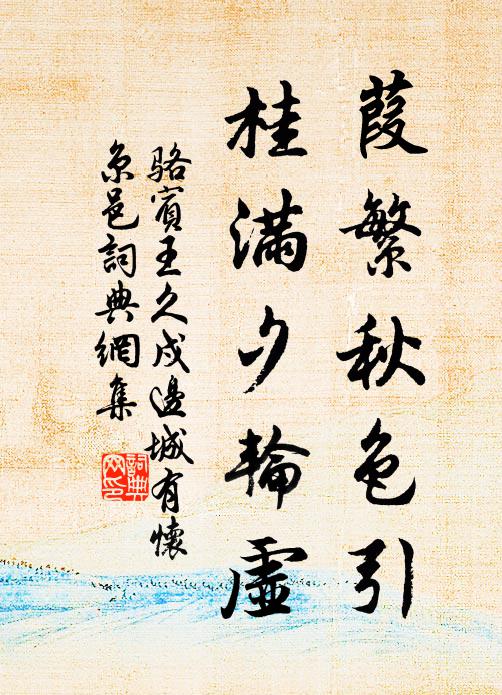 葭繁秋色引
桂滿夕輪虛
駱賓王久戍邊城有懷
京邑詞典網集
詞典
网印